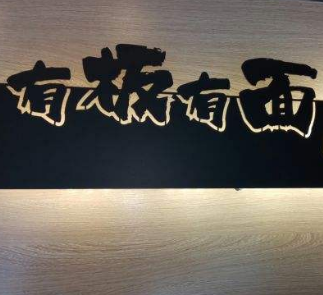 有板有面